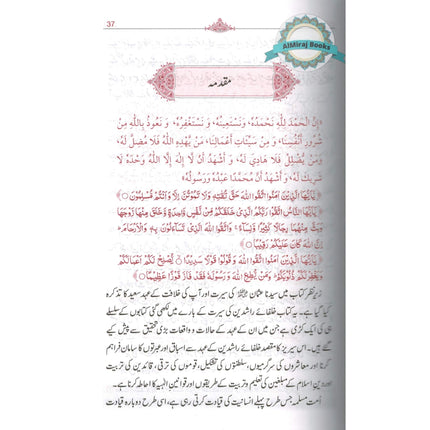 37
AlMiraj Books
مقدمہ
﴿إِنَّ الْحَمْدَ لِلّٰهِ نَحْمَدُهُ، وَ نَسْتَعِيْنُهُ، وَ نَسْتَغْفِرُهُ، وَ نَعُوْذُ بِاللّٰهِ مِنْ
شُرُوْرِ أَنْفُسِنَا، وَ مِنْ سَيِّئَاتِ أَعْمَالِنَا، مَنْ يَهْدِهِ اللّٰهُ فَلَا مُضِلَّ لَهُ،
وَمَنْ يُّضْلِلْ فَلَا هَادِيَ لَهُ، وَ أَشْهَدُ أَنْ لَّا إِلٰهَ إِلَّا اللّٰهُ وَحْدَهُ لَا
شَرِيْكَ لَهُ، وَ أَشْهَدُ أَنَّ مُحَمَّدًا عَبْدُهُ وَرَسُوْلُهُ﴾
﴿يٰٓاَيُّهَا الَّذِيْنَ اٰمَنُوا اتَّقُوا اللّٰهَ حَقَّ تُقٰتِهٖ وَلَا تَمُوْتُنَّ اِلَّا وَاَنْتُمْ مُّسْلِمُوْنَ﴾
﴿يٰٓاَيُّهَا النَّاسُ اتَّقُوْا رَبَّكُمُ الَّذِيْ خَلَقَكُمْ مِّنْ نَّفْسٍ وَّاحِدَةٍ وَّخَلَقَ مِنْهَا زَوْجَهَا
وَبَثَّ مِنْهُمَا رِجَالًا كَثِيْرًا وَّنِسَآءً وَاتَّقُوا اللّٰهَ الَّذِيْ تَسَآءَلُوْنَ بِهٖ وَالْاَرْحَامَ
اِنَّ اللّٰهَ كَانَ عَلَيْكُمْ رَقِيْبًا﴾
﴿يٰٓاَيُّهَا الَّذِيْنَ اٰمَنُوا اتَّقُوا اللّٰهَ وَ قُوْلُوْا قَوْلًا سَدِيْدًا يُّصْلِحْ لَكُمْ اَعْمَالَكُمْ
وَيَغْفِرْ لَكُمْ ذُنُوْبَكُمْ وَمَنْ يُّطِعِ اللّٰهَ وَرَسُوْلَهٗ فَقَدْ فَازَ فَوْزًا عَظِيْمًا﴾
زیر نظر کتاب میں سیدنا عثمان رضی اللہ عنہ کی سیرت اور آپ کی خلافت کے عہد سعید کا تذکرہ
کیا گیا ہے۔ یہ کتاب خلفائے راشدین کی سیرت کے بارے میں لکھی گئی کتابوں کے سلسلے
ہی کی ایک کڑی ہے جن میں ان کے عہد کے حالات و واقعات بڑی تحقیق سے پیش کیے
گئے ہیں۔ اس سیریز کا مقصد خلفائے راشدین کے عہد سے اسباق اور عبرتوں کا سامان فراہم
کرنا اور معاشروں کی سرگرمیوں، سلطنتوں کی تشکیل، قوموں کی ترقی، قائدین کی تربیت
اور دین اسلام کے مبلغین کی تعلیم و تربیت کے طریقوں اور قوانین الٰہیہ کا احاطہ کرنا ہے۔
امت مسلمہ جس طرح پہلے انسانیت کی قیادت کرتی رہی ہے، اسی طرح دوبارہ قیادت